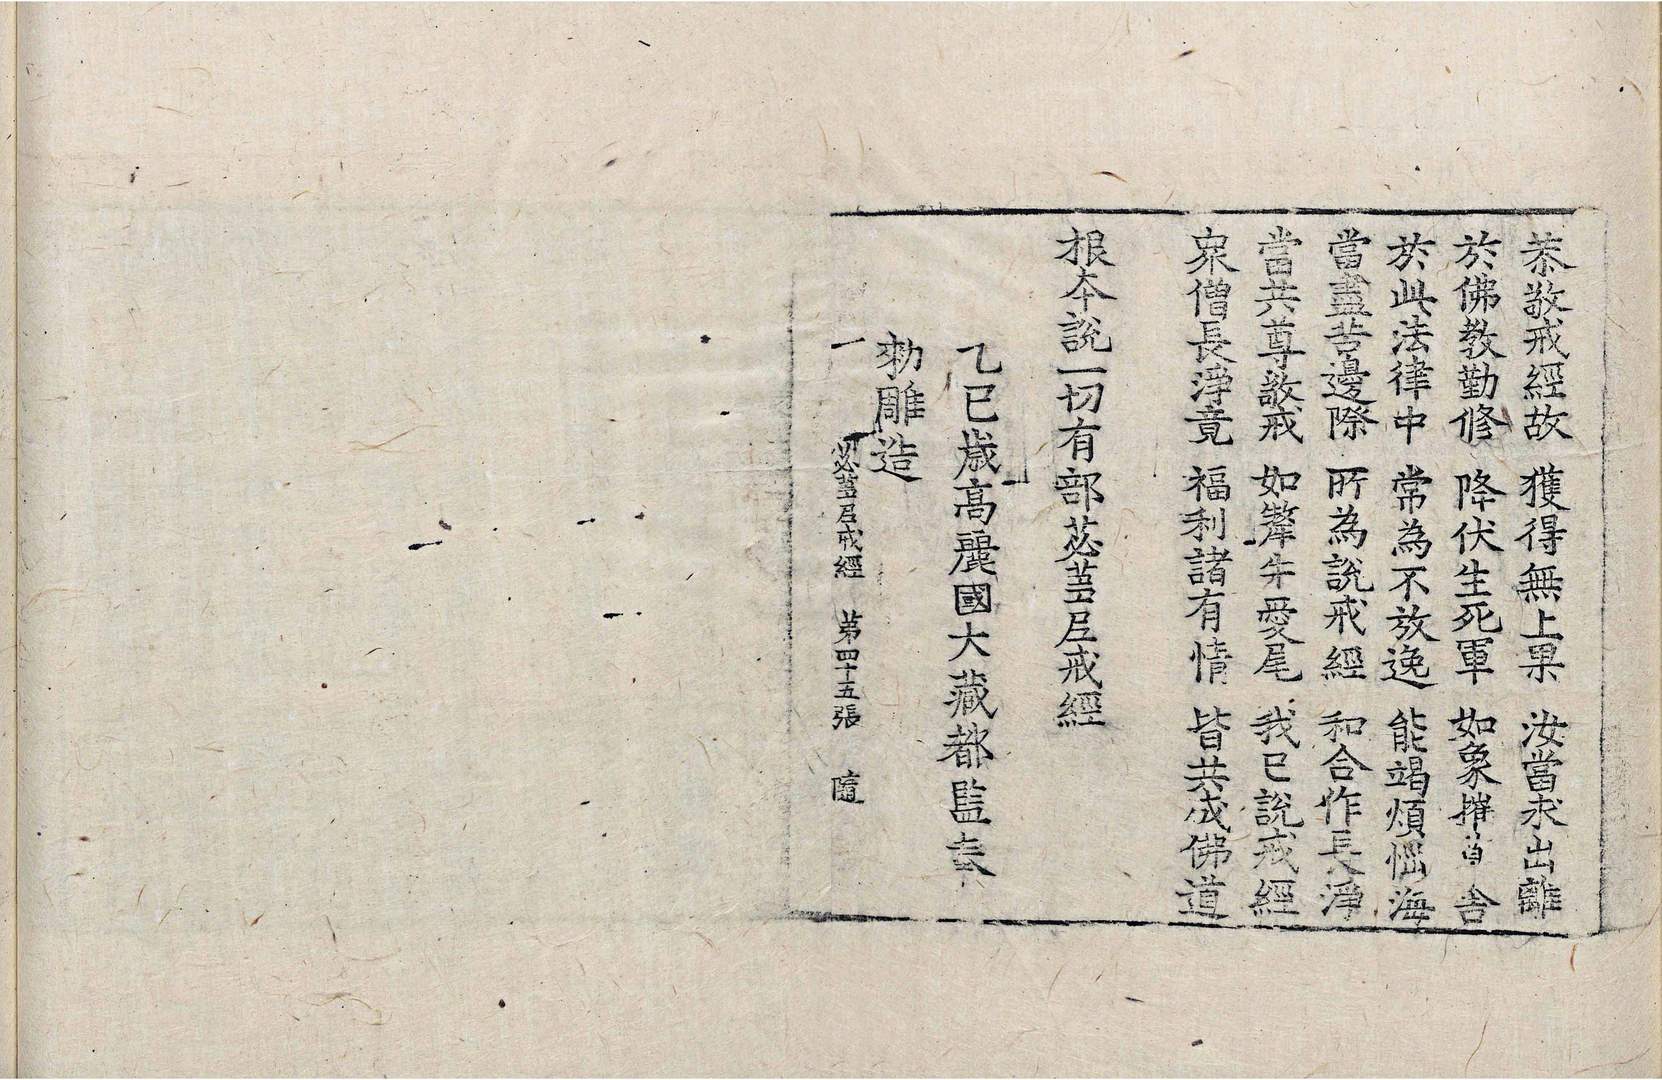 恭敬戒經故 獲得無上果 汝當求出離
於佛教勤修 降伏生死軍 如象摧草舍
於此法律中 常為不放逸 能竭煩惱海
當盡苦邊際 所為說戒經 和合作長淨
當共尊敬戒 如犛牛愛尾 我已說戒經
衆僧長淨竟 福利諸有情 皆共成佛道
根本說一切有部苾蒭尼戒經
乙巳歲高麗國大藏都監奉
勅雕造
苾蒭尼戒經 第四十五張 隨